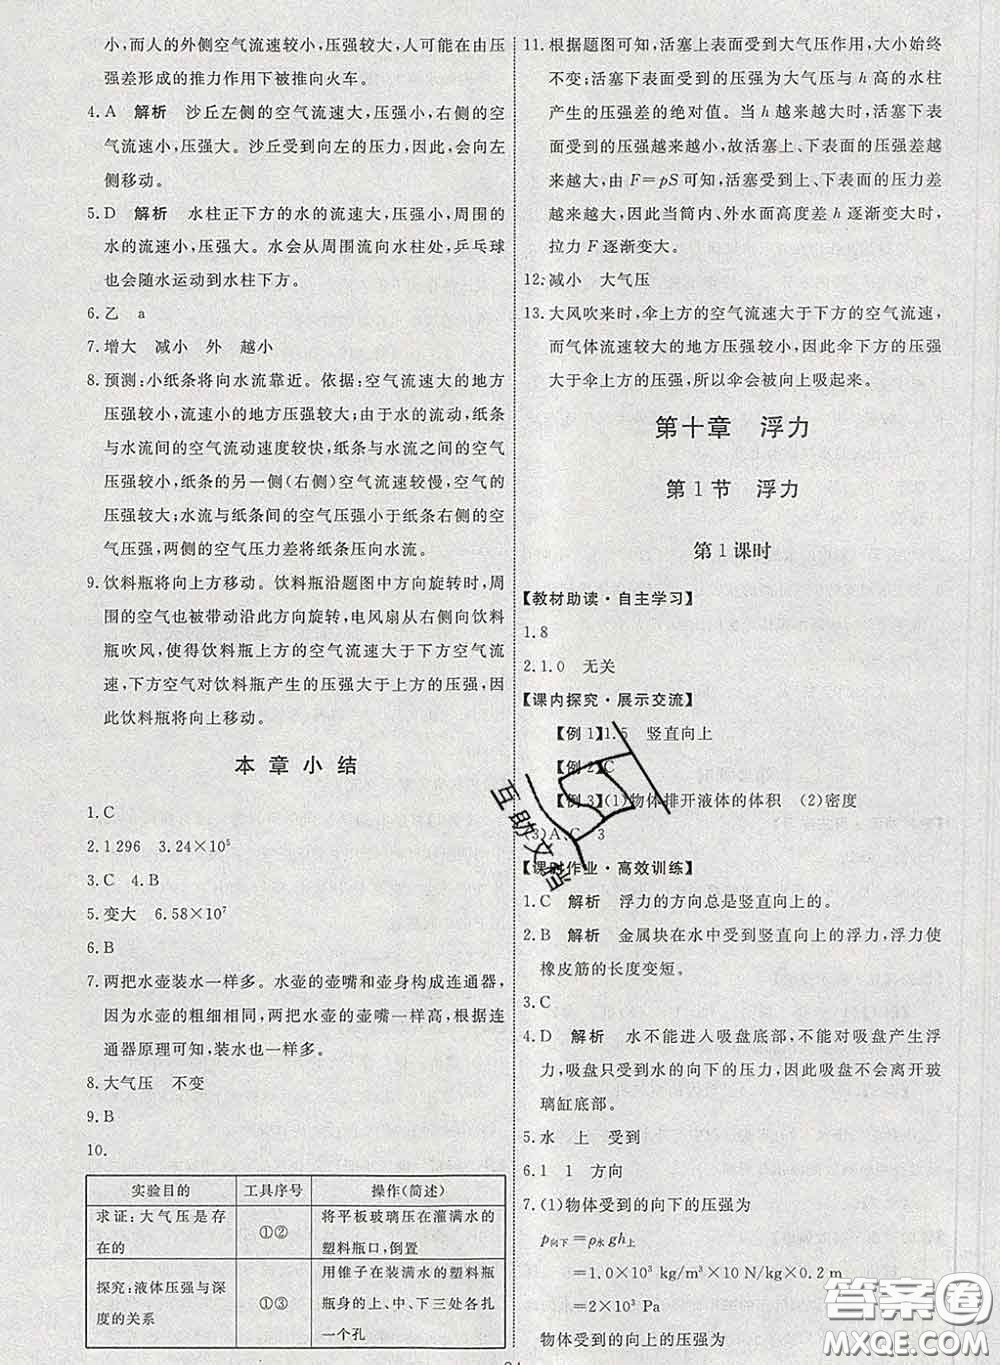 小,而人的外侧空气流速较小,压强较大,人可能在由压
强差形成的推力作用下被推向火车。
4. A 解析 沙丘左侧的空气流速大,压强小,右侧的空
气流速小,压强大。沙丘受到向左的压力,因此,会向左
侧移动。
5. D 解析 水柱正下方的水的流速大,压强小,周围的
水的流速小,压强大。水会从周围流向水柱处,乒乓球
也会随水运动到水柱下方。
6. 乙 a
7. 增大 减小 外 越小
8. 预测:小纸条将向水流靠近。依据:空气流速大的地方
压强较小,流速小的地方压强较大;由于水的流动,纸条
与水流间的空气流动速度较快,纸条与水流之间的空气
压强较小;纸条的另一侧(右侧)空气流速较慢,空气的
压强较大;水流与纸条间的空气压强小于纸条右侧的空
气压强,两侧的空气压力差将纸条压向水流。
9. 饮料瓶将向上方移动。饮料瓶沿题图中方向旋转时,周
围的空气也被带动沿此方向旋转,电风扇从右侧向饮料
瓶吹风,使得饮料瓶上方的空气流速大于下方空气流
速,下方空气对饮料瓶产生的压强大于上方的压强,因
此饮料瓶将向上移动。
本章小结
1. C
2. 1 296 3.24×10⁵
3. C 4. B
5. 变大 6.58×10⁷
6. B
7. 两把水壶装水一样多。水壶的壶嘴和壶身构成连通器,
因为水壶的粗细相同,两把水壶的壶嘴一样高,根据连
通器原理可知,装水也一样多。
8. 大气压 不变
9. B
10.
实验目的 工具序号 操作(简述)
求证:大气压是存
在的 ①② 将平板玻璃压在灌满水的
塑料瓶口,倒置
探究:液体压强与深
度的关系 ①③ 用锥子在装满水的塑料瓶
瓶身的上、中、下三处各扎
一个孔
11. 根据题图可知,活塞上表面受到大气压作用,大小始终
不变;活塞下表面受到的压强为大气压与 h 高的水柱
产生的压强差的绝对值。当 h 越来越大时,活塞下表
面受到的压强越来越小,故活塞上、下表面的压强差越
来越大,由 F=pS 可知,活塞受到上、下表面的压力差
越来越大,因此当筒内、外水面高度差 h 逐渐变大时,
拉力 F 逐渐变大。
12. 减小 大气压
13. 大风吹来时,伞上方的空气流速大于下方的空气流速,
而气体流速较大的地方压强较小,因此伞下方的压强
大于伞上方的压强,所以伞会被向上吸起来。
第十章 浮力
第1节 浮力
第1课时
【教材助读·自主学习】
1. 8
2. 1.0 无关
【课内探究·展示交流】
【例1】1.5 竖直向上
【例2】C
【例3】(1)物体排开液体的体积 (2)密度
(3)A、C 3
【课时作业·高效训练】
1. C 解析 浮力的方向总是竖直向上的。
2. B 解析 金属块在水中受到竖直向上的浮力,浮力使
橡皮筋的长度变短。
3. C
4. D 解析 水不能进入吸盘底部,不能对吸盘产生浮
力,吸盘只受到水的向下的压力,因此吸盘不会离开玻
璃缸底部。
5. 水 上 受到
6. 1 1 方向
7. (1)物体受到的向下的压强为
p向下=ρ水gh上
=1.0×10³ kg/m³×10 N/kg×0.2 m
=2×10³ Pa
物体受到的向上的压强为
互助文档
答案圈
MXQE.COM